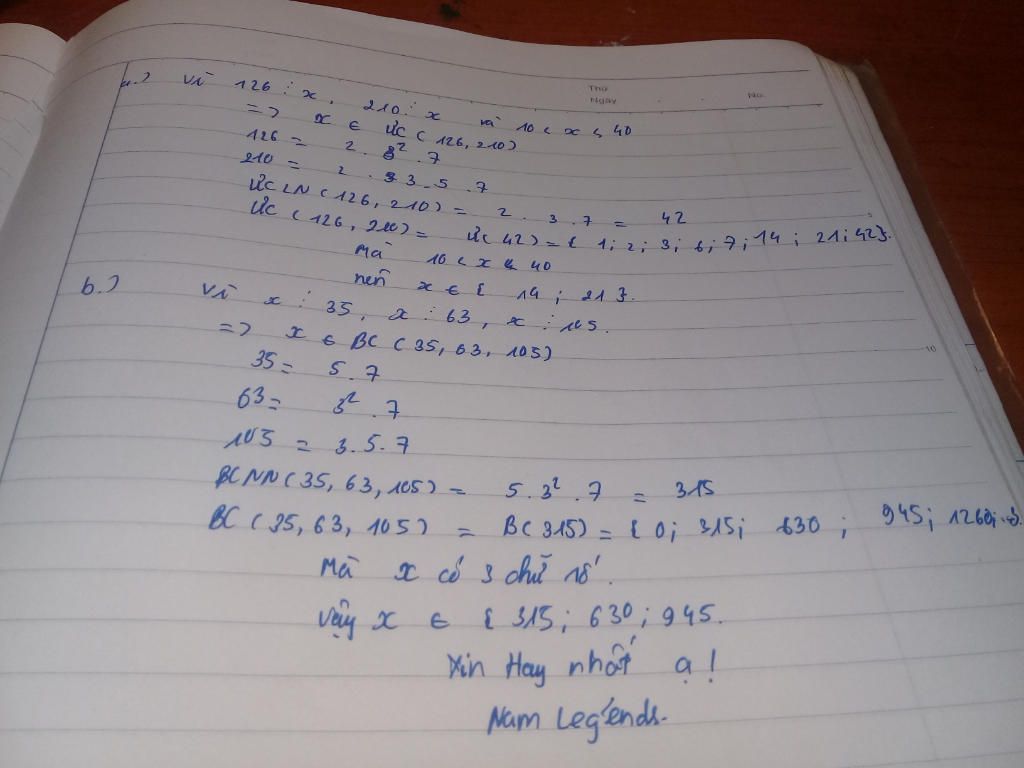 Thứ
Ngày . . No.
a.) Vì 126 ⋮ x, 210 ⋮ x và 10 < x < 40
=> x ∈ ƯC (126, 210)
126 = 2 . 3² . 7
210 = 2 . 3 . 5 . 7
ƯCLN (126, 210) = 2 . 3 . 7 = 42
ƯC (126, 210) = Ư(42) = { 1; 2; 3; 6; 7; 14; 21; 42}.
Mà 10 < x < 40
nên x ∈ { 14 ; 21 }.
b.) Vì x ⋮ 35, x ⋮ 63, x ⋮ 105.
=> x ∈ BC (35, 63, 105)
35 = 5 . 7
10
63 = 3² . 7
105 = 3 . 5 . 7
BCNN (35, 63, 105) = 5 . 3² . 7 = 315
BC (35, 63, 105) = B(315) = { 0; 315; 630 ; 945; 1260;..}.
Mà x có 3 chữ số.
Vậy x ∈ { 315; 630; 945.
Xin Hay nhất ạ !
Nam Legends.